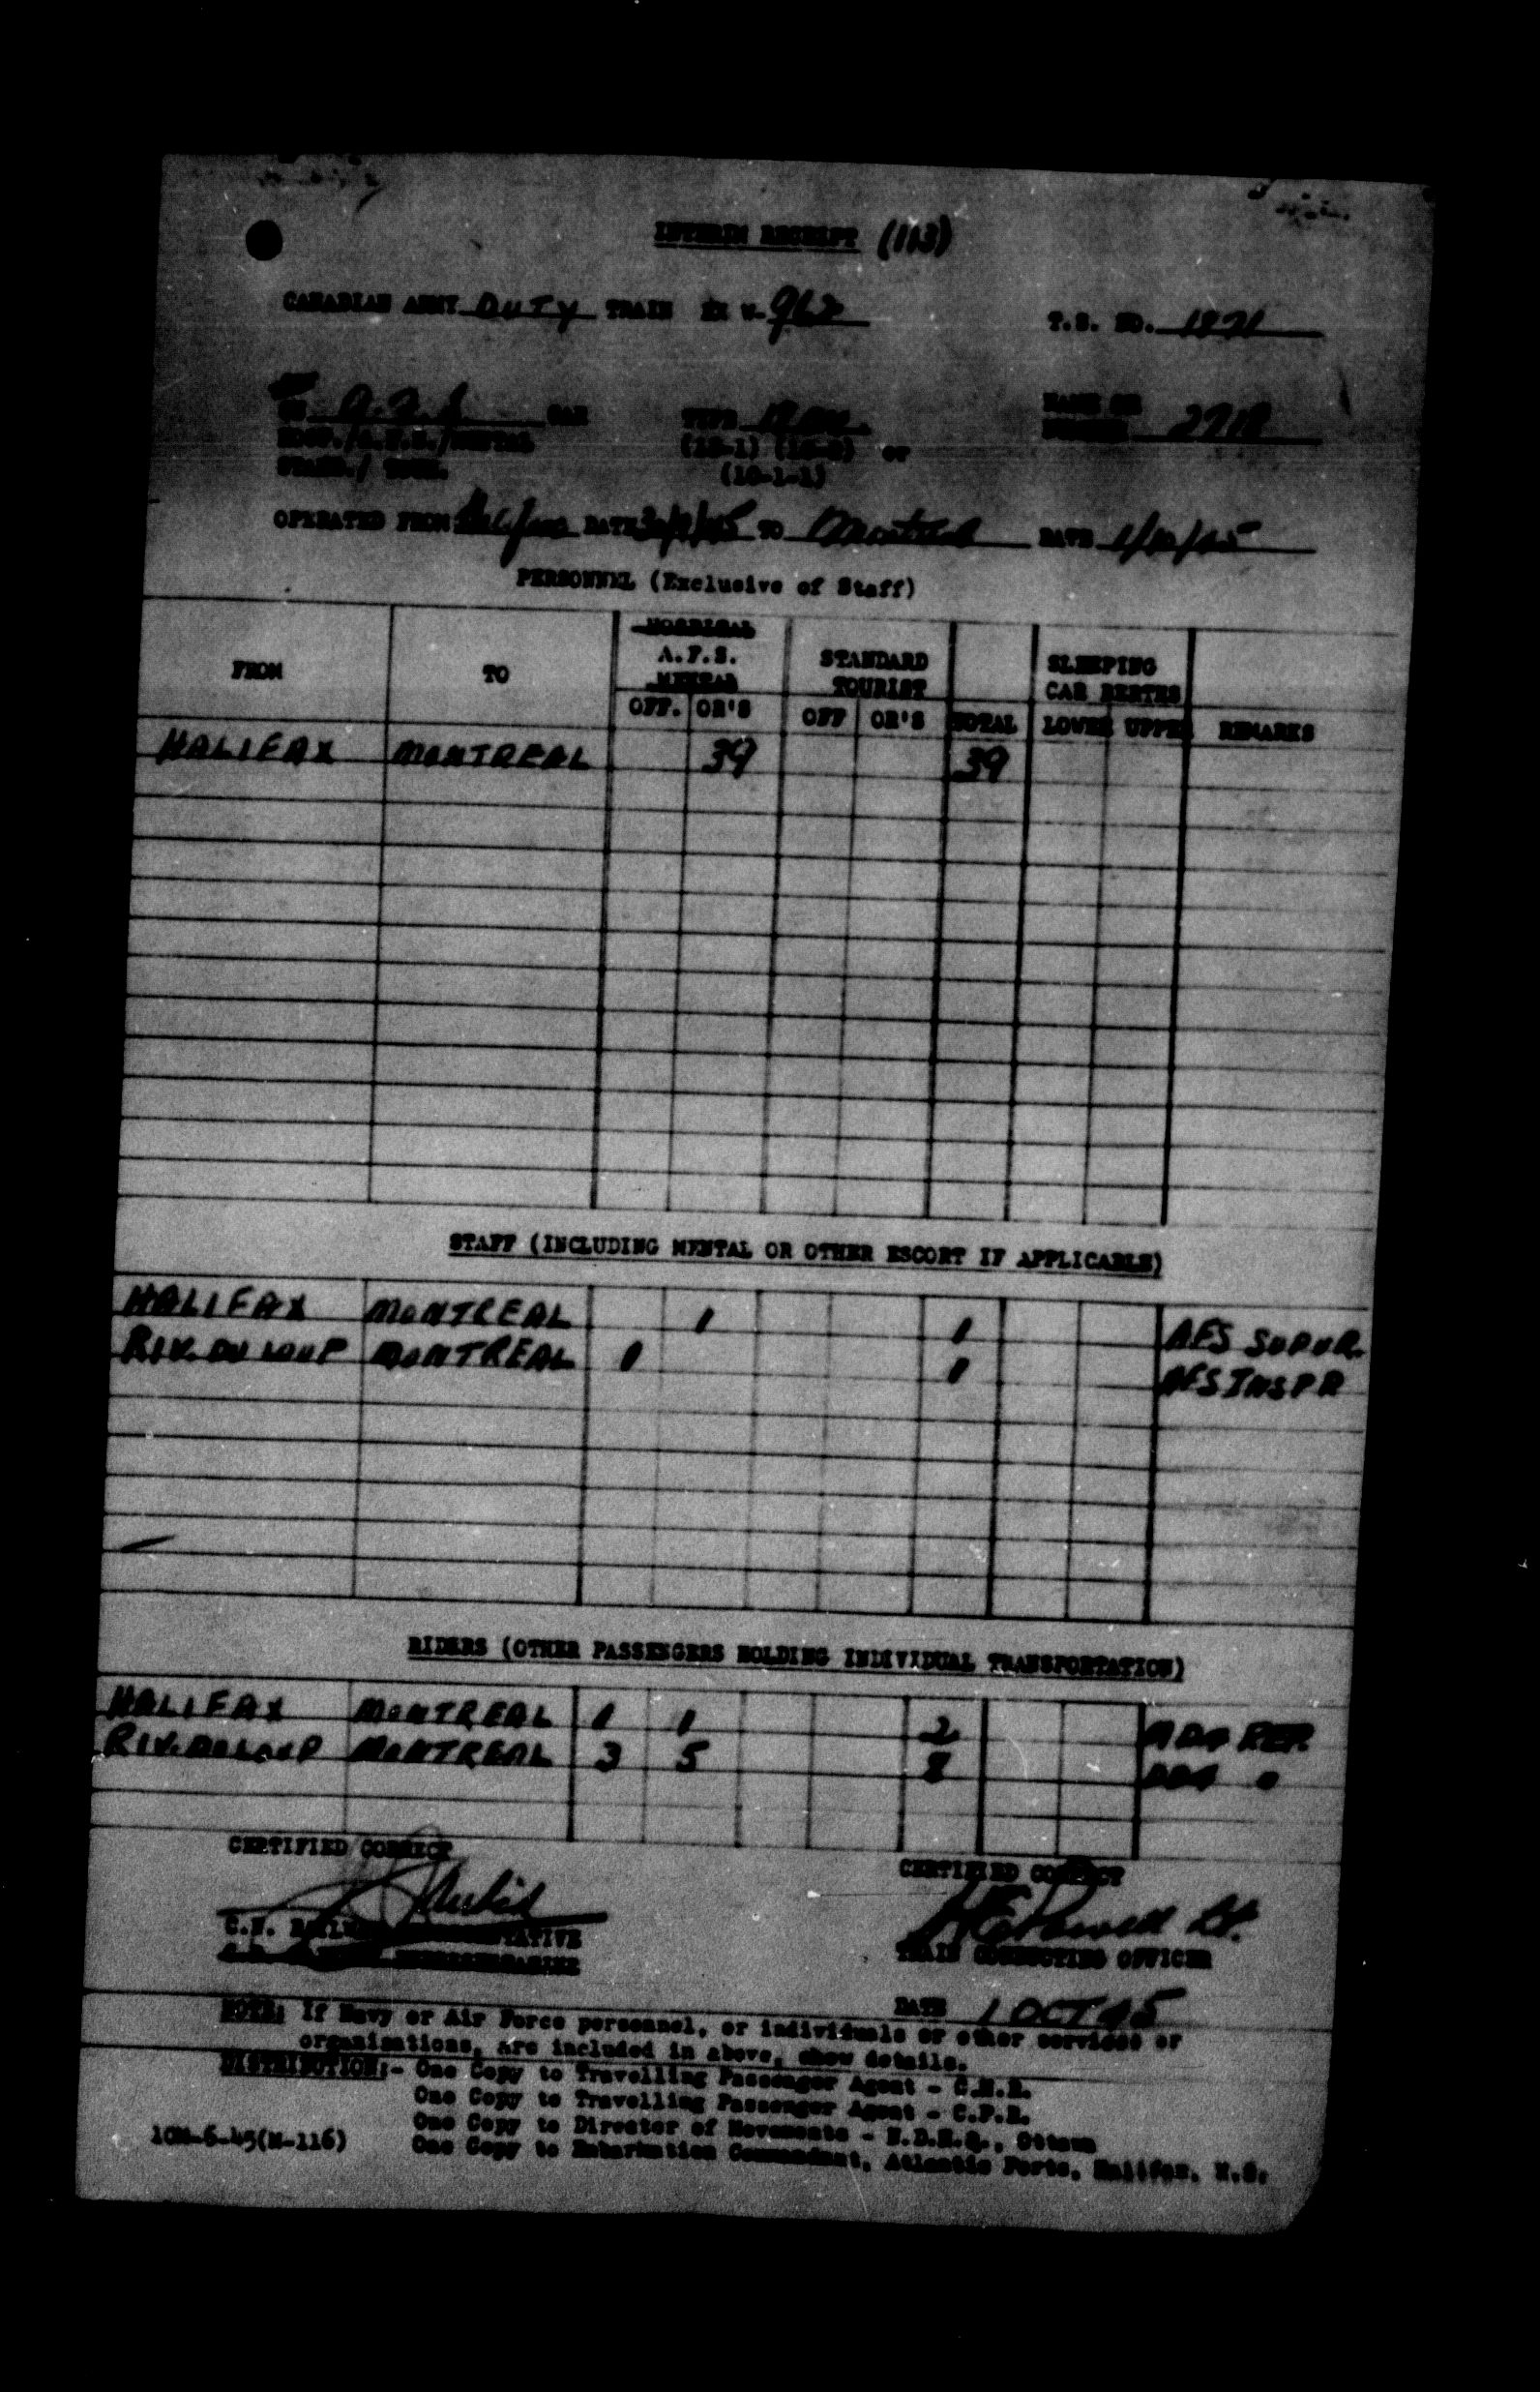 INTERIM RECEIPT (113)
CANADIAN ARMY DUTY TRAIN EX W-962
T.S. NO. 1821
ON A.F.S. CAR
TYPE
NAME OR
NUMBER 2718
HOSP./A.F.S./MENTAL
(12-1) or
STAND./ TOUR.
(10-1-1)
OPERATED FROM Halifax DATE 30/9/45 TO Montreal DATE 1/10/45
PERSONNEL (Exclusive of Staff)
FROM TO HOSPITAL A.F.S. MENTAL STANDARD TOURIST SLEEPING CAR BERTHS
OFF. OR'S OFF OR'S TOTAL LOWER UPPER REMARKS
HALIFAX MONTREAL 39 39
STAFF (INCLUDING MENTAL OR OTHER ESCORT IF APPLICABLE)
HALIFAX MONTREAL 1 1 AFS SUPVR.
RIV. DU LOUP MONTREAL 1 1 AFS INSPR
RIDERS (OTHER PASSENGERS HOLDING INDIVIDUAL TRANSPORTATION)
HALIFAX MONTREAL 1 1 2 REP.
RIV. DU LOUP MONTREAL 3 5 8 "
CERTIFIED CORRECT
CERTIFIED CORRECT
HE Powell Lt.
C.N.
TRAIN CONDUCTING OFFICER
DATE 1 OCT 45
NOTE: If Navy or Air Force personnel, or individuals or other services or
organizations, are included in above, show details.
DISTRIBUTION:- One Copy to Travelling Passenger Agent - C.N.R.
One Copy to Travelling Passenger Agent - C.P.R.
One Copy to Director of Movements - N.D.H.Q., Ottawa
One Copy to Embarkation Commandant, Atlantic Ports, Halifax, N.S.
10M-6-45(M-116)